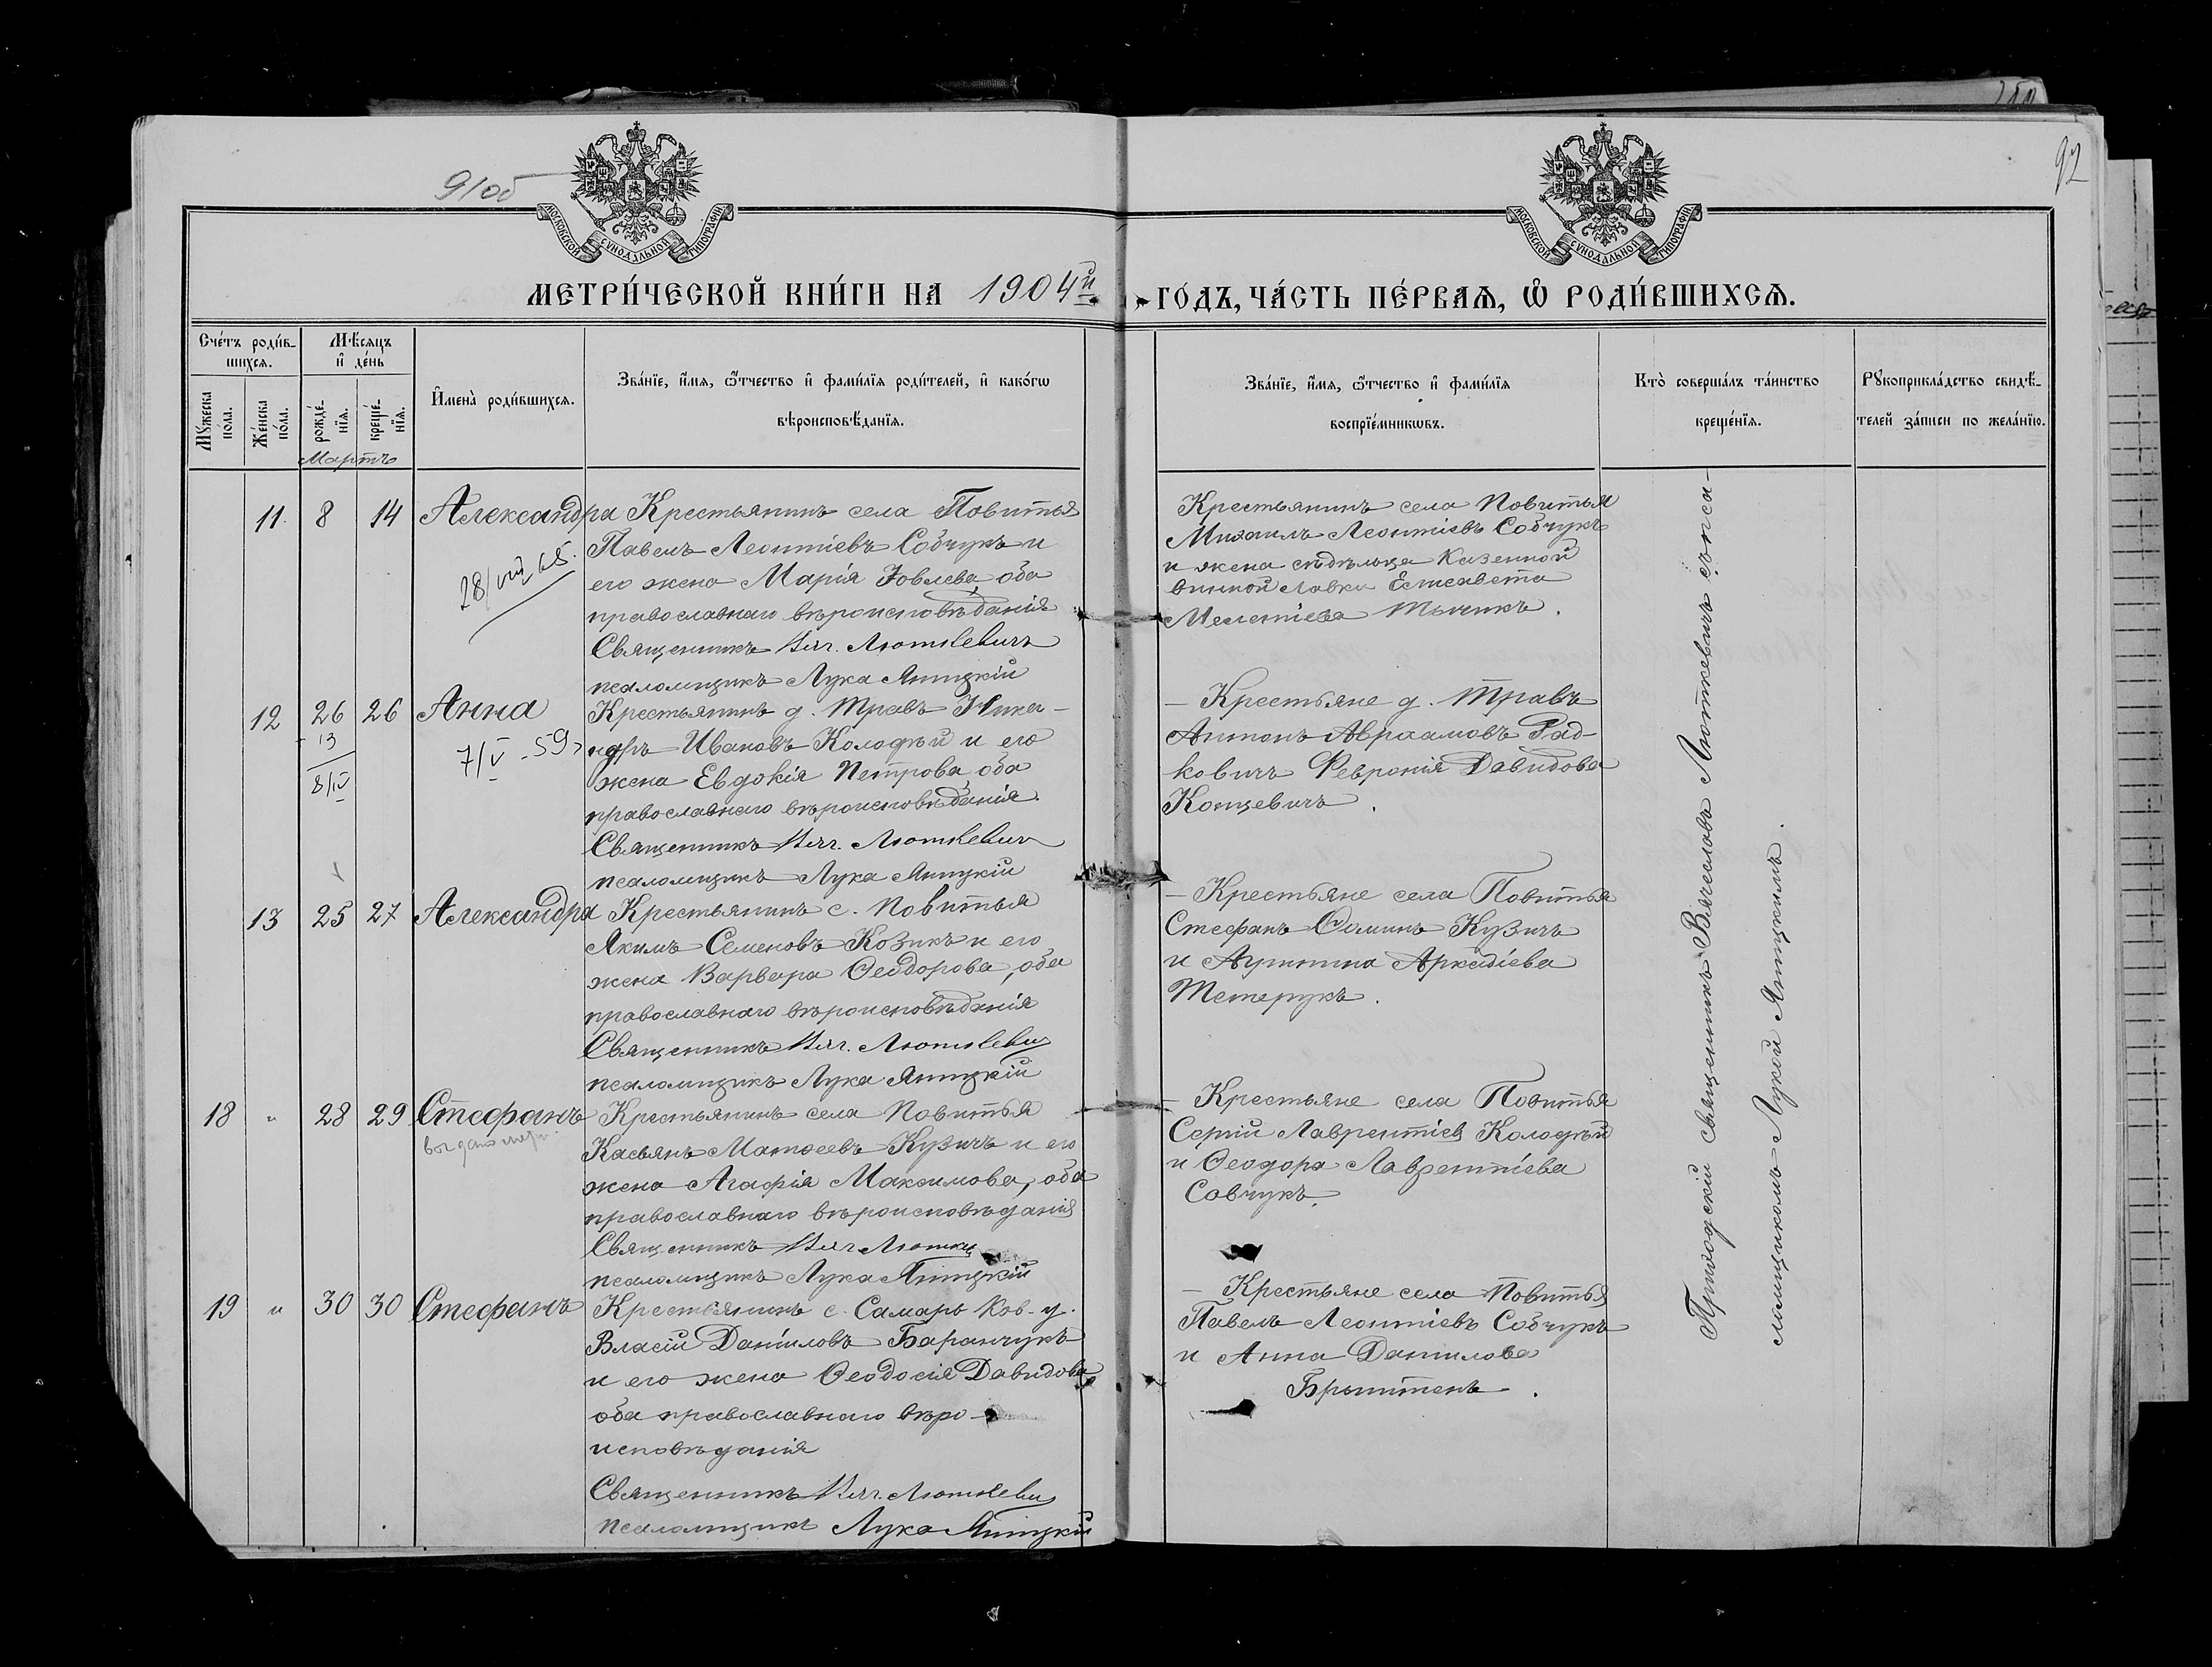 91об
92
МОСКОВСКОЙ СѴНОДАЛЬНОЙ ТИПОГРАФІИ
МОСКОВСКОЙ СѴНОДАЛЬНОЙ ТИПОГРАФІИ
МЕТРИ́ЧЕСКОЙ КНИ́ГИ НА 1904й ГО́ДЪ, ЧА́СТЬ ПЕ́РВАѦ, Ѽ РОДИ́ВШИХСѦ.
Сче́тъ роди́в-
шихсѧ.
Мѣ́сѧцъ
и҆ де́нь
Мꙋ́жеска
по́ла.
Же́нска
по́ла.
рожде́-
нїѧ.
креще́-
нїѧ.
И҆мена̀ роди́вшихсѧ.
Зва́нїе, и҆́мѧ, ѻ҆́тчество и҆ фами́лїѧ роди́телей, и҆ како́гѡ
вѣроисповѣ́данїѧ.
Зва́нїе, и҆́мѧ, ѻ҆́тчество и҆ фами́лїѧ
воспрїе́мникѡвъ.
Кто̀ соверша́лъ та́инство
креще́нїѧ.
Рꙋкоприкла́дство свидѣ́-
телей за́писи по жела́нїю.
Мартъ
11. 8 14 Александра
28/VIII 65.
Крестьянинъ села Повитья
Павелъ Леонтіевъ Собчукъ и
его жена Марія Іовлева, оба
православнаго вѣроисповѣданія
Священникъ Вяч. Люткевичъ
псаломщикъ Лука Яницкій
Крестьянинъ села Повитья
Михаилъ Леонтіевъ Собчукъ
и жена сѣдѣльца Казенной
винной Лавки Елисавета
Мелетіева
12 26 26 Анна
13
8/IV
7/V - 59
Крестьянинъ д. Травъ Ника-
ндръ Ивановъ Колодѣй и его
жена Евдокія Петрова, оба
православнаго вѣроисповѣданія.
Священникъ Вяч. Люткевич
псаломщикъ Лука Яницкій
— Крестьяне д. Травъ
Антонъ Авраамовъ Рад-
ковичъ Февронія Давидова
Концевичъ.
13 25 27 Александра
Крестьянинъ с. Повитья
Якимъ Семеновъ Козикъ и его
жена Варвара Ѳеодорова, оба
православнаго вѣроисповѣданія
Священникъ Вяч. Люткевич
псаломщикъ Лука Яницкій
— Крестьяне села Повитья
Стефанъ Ѳоминъ Кузичъ
и Агрипина Аркадіева
Тетерукъ.
18 " 28 29 Стефанъ
Крестьянинъ села Повитья
Касьянъ Матѳеевъ Кузичъ и его
жена Агафія Максимова, оба
православнаго вѣроисповѣданія
Священникъ Вяч Лютке
псаломщикъ Лука Яницкій
— Крестьяне села Повитья
Сергій Лаврентіев Колодѣй
и Ѳеодора Лаврентіева
Савчукъ.
19 " 30 30 Стефанъ
Крестьянинъ с. Самарь Ков. у.
Власій Даніиловъ Баранчукъ
и его жена Ѳеодосія Давидова,
оба православнаго вѣро-
исповѣданія
Священникъ Вяч. Люткевич
псаломщикъ Лука Яницкій
— Крестьяне села Повитья
Павелъ Леонтіевъ Собчукъ
и Анна Данилова
Приходскій священникъ Вячеславъ Люткевичъ съ пса-
ломщикомъ Лукой Яницкимъ.